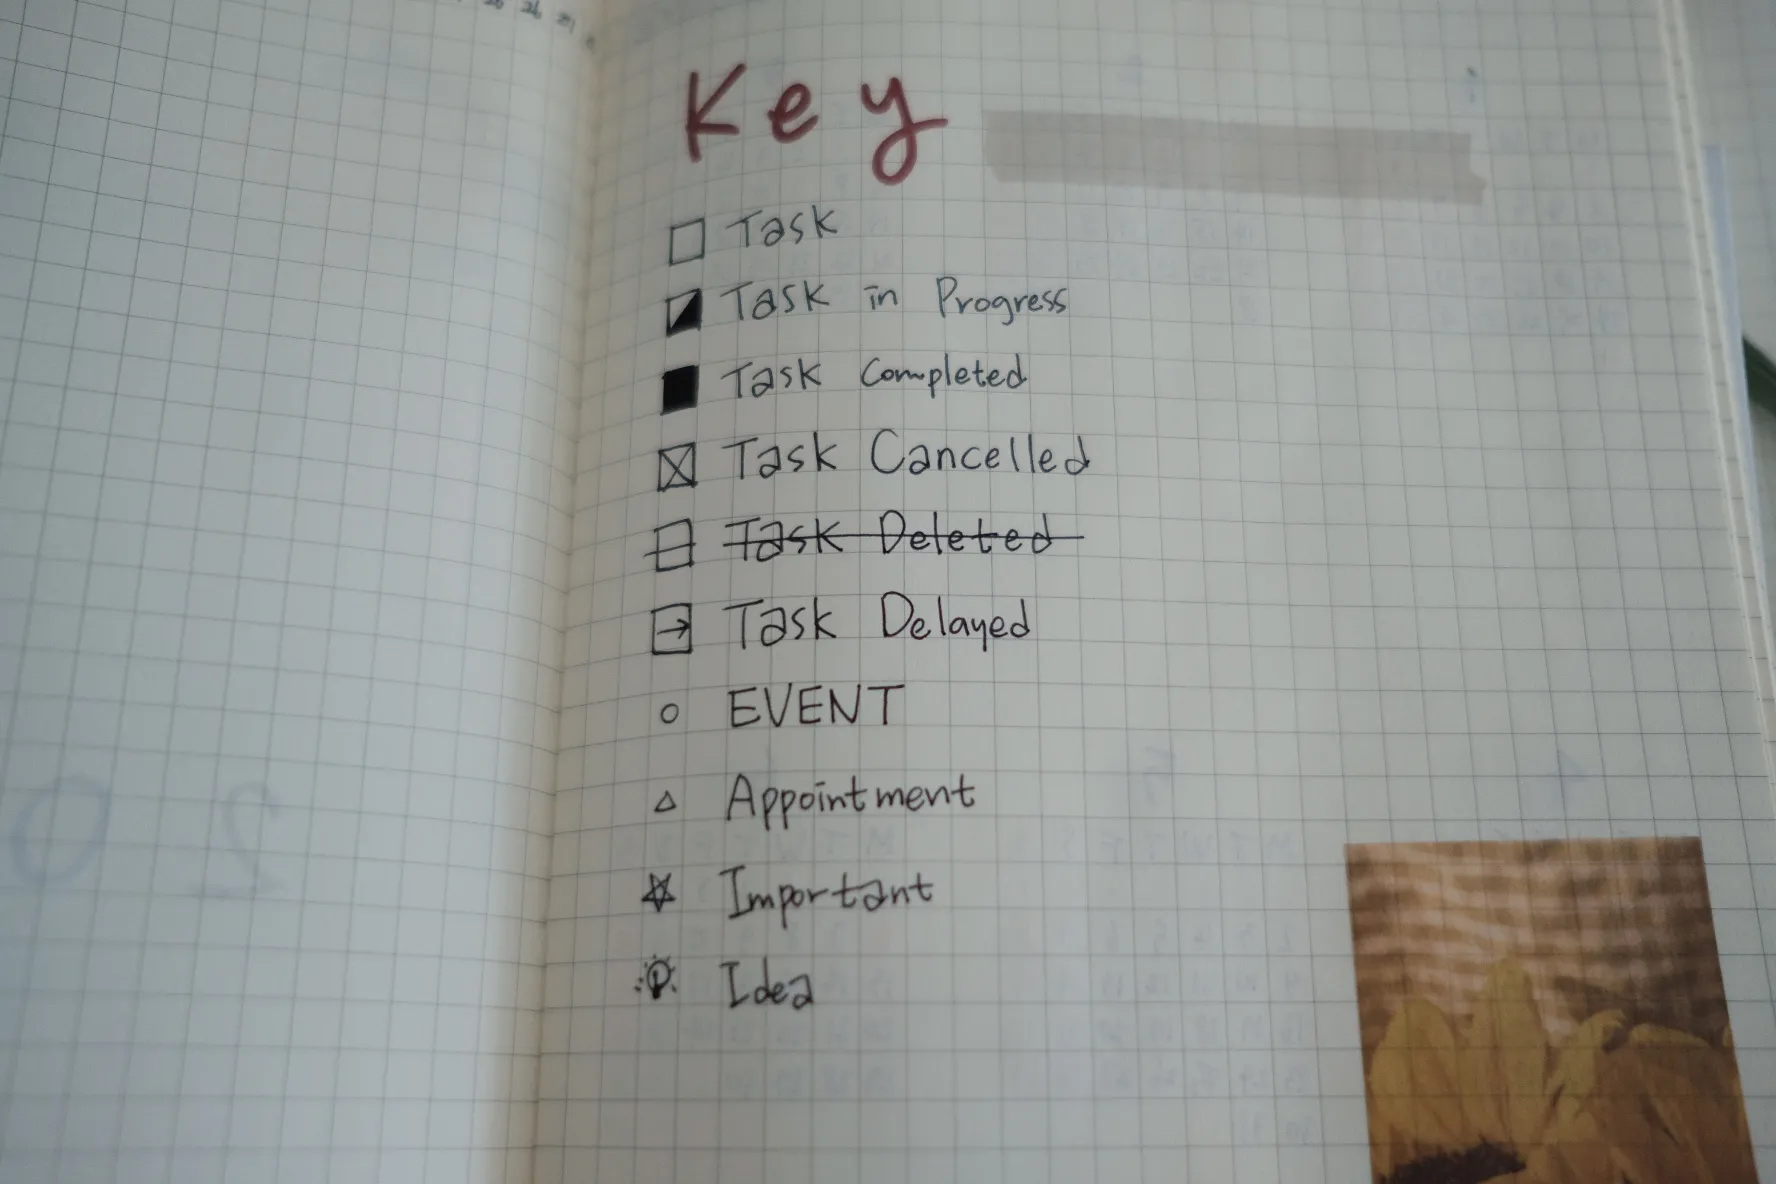 Key
Task
Task in Progress
Task Completed
Task Cancelled
Task Deleted
Task Delayed
EVENT
Appointment
Important
Idea